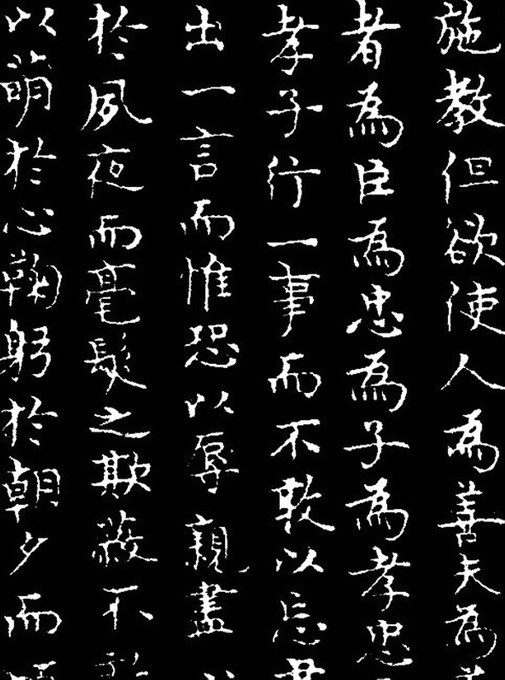 施教但欲使人為善夫為善
者為臣為忠為子為孝忠
孝子行一事而不敢以忘君
出一言而惟恐以辱親盡
於夙夜而毫髮之欺蔽不
以萌於心鞠躬於朝夕而